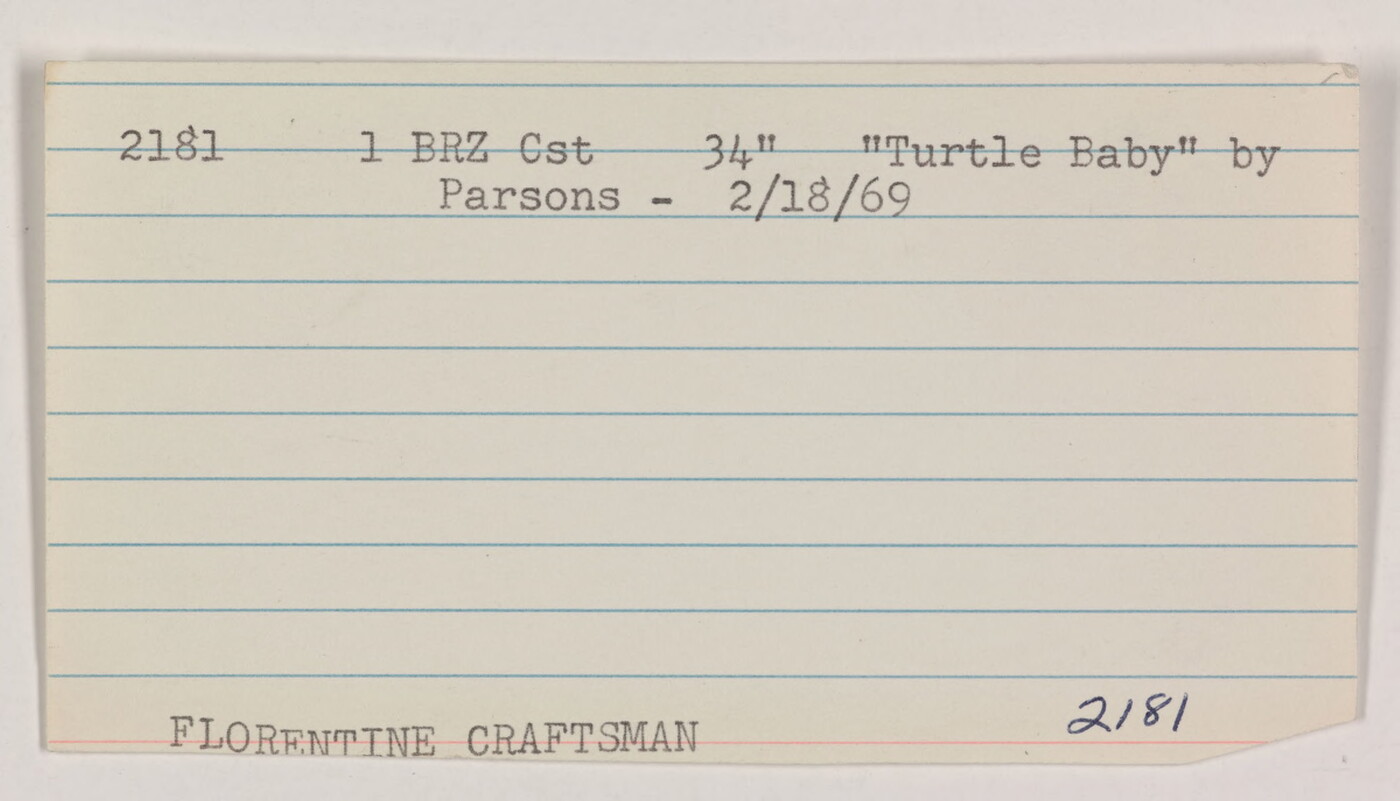 2181 1 BRZ Cst 34" "Turtle Baby" by
Parsons - 2/18/69
FLORENTINE CRAFTSMAN 2181